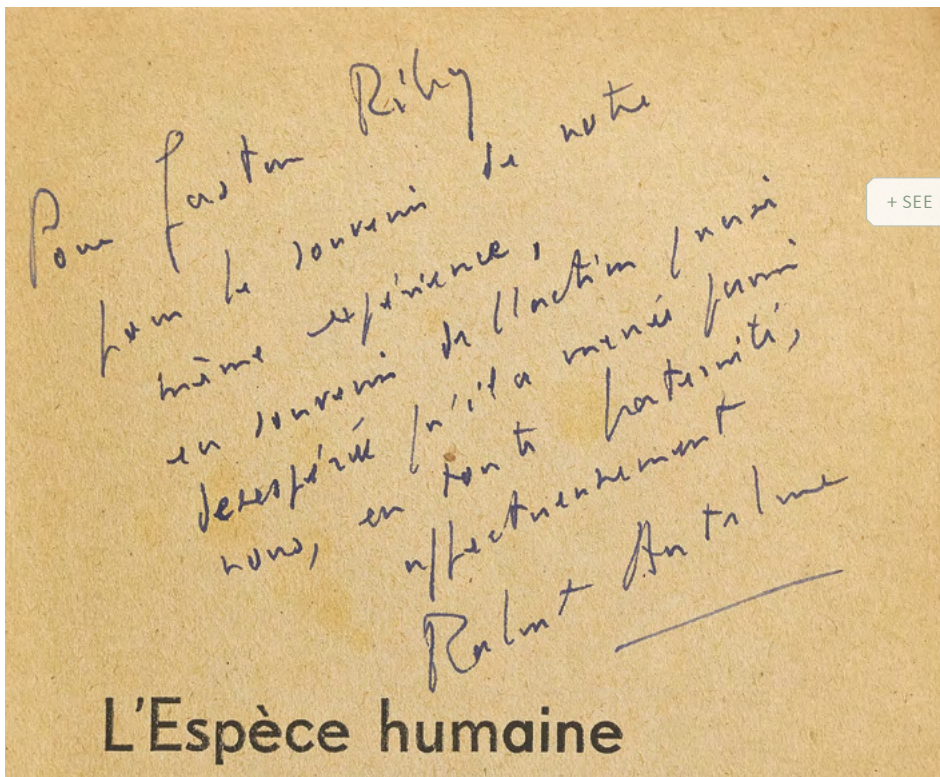 Pour Gaston Riby
pour le souvenir de notre
même expérience,
+ SEE
en souvenir de l'action quasi
desespérée qu'il a menée parmi
nous, en toute fraternité,
affectueusement
Robert Antelme
L'Espèce humaine